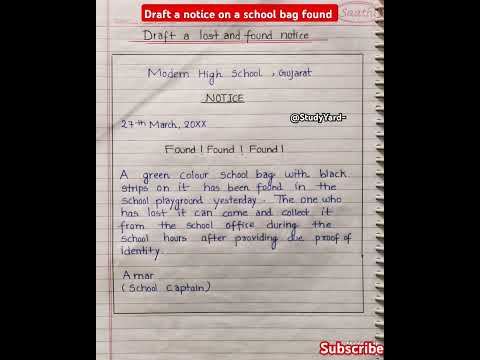 Draft a notice on a school bag found
Saathi
Draft a lost and found notice
Modern High School, Gujarat
NOTICE
@StudyYard-
27th March, 20XX
Found! Found! Found!
A green colour school bag with black
strips on it has been found in the
school playground yesterday. The one who
has lost it can come and collect it
from the school office during the
school hours after providing due proof of
identity.
Amar
(School Captain)
Subscribe